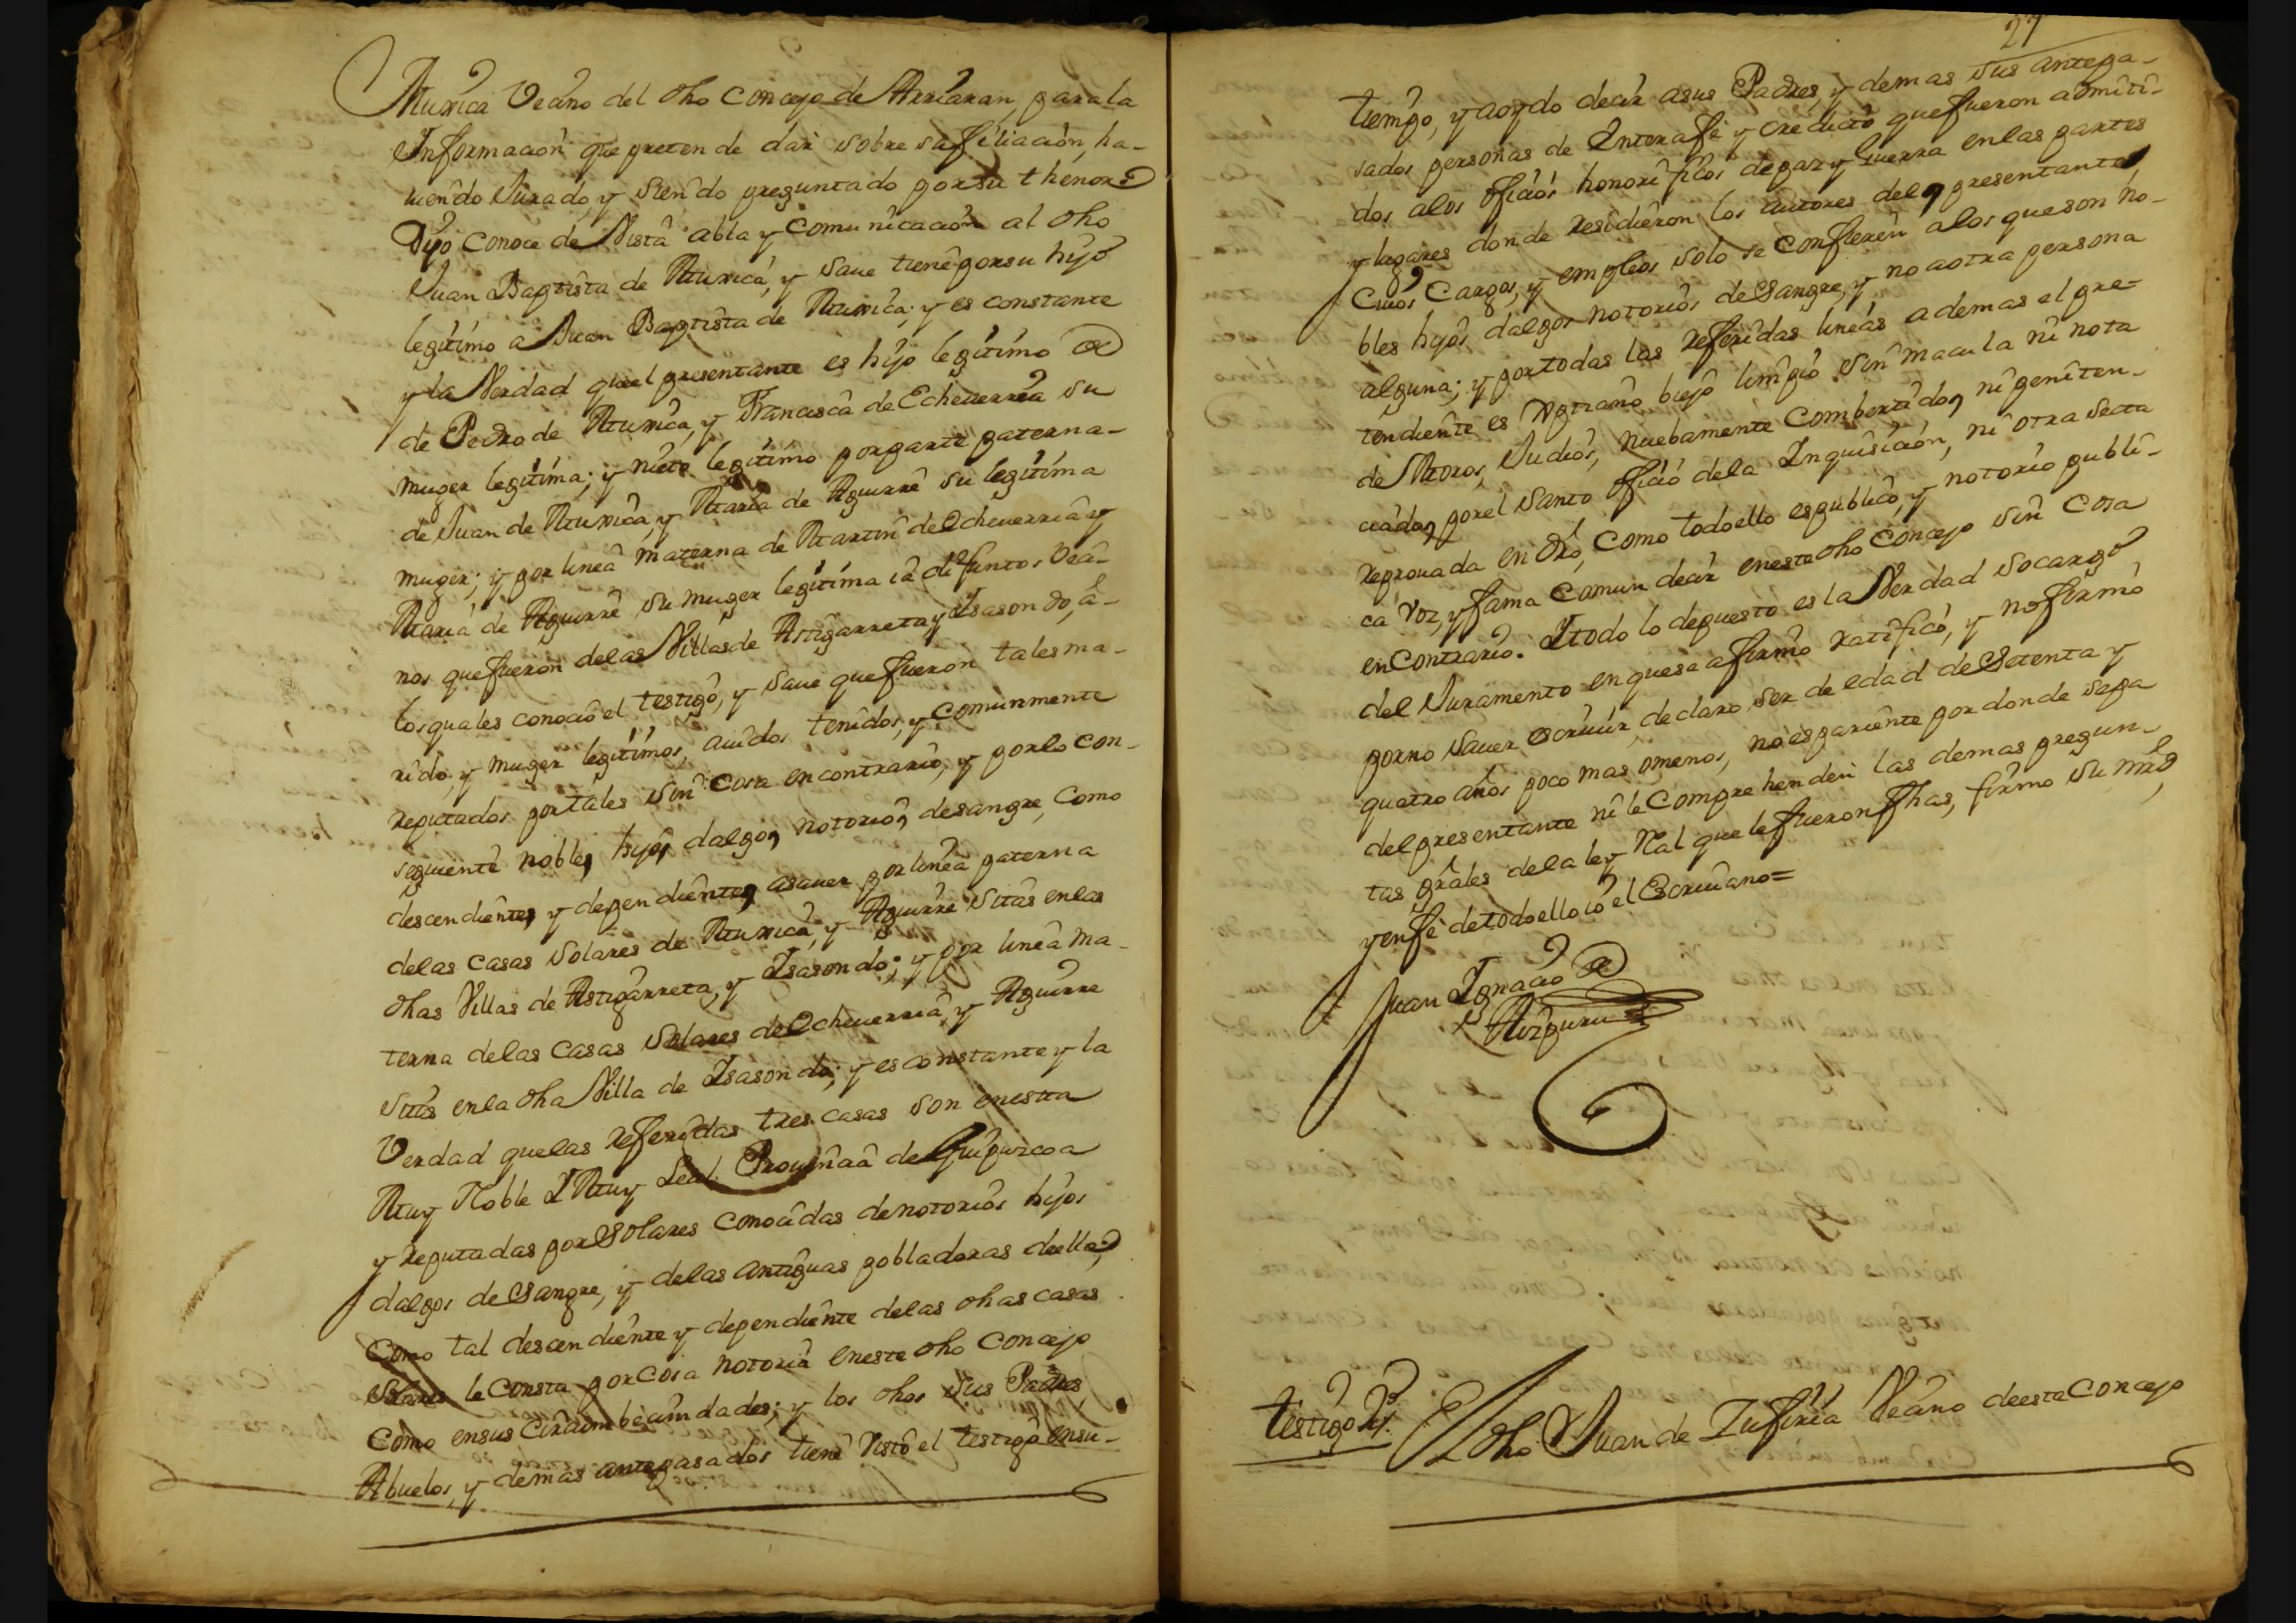 Muxica Vecino del dho Concejo de Arriaran, para la
Informacion que preten de dar sobre su filiacion, ha-
uiendo Jurado, y siendo preguntado por su thenor:
Dijo Conoce de Vista abla y Comunicacion al dho
Juan Baptista de Muxica, y saue tiene por su hijo
legitimo a Juan Baptista de Muxica; y es constante
y la Verdad que el presentante es hijo legitimo
de Pedro de Muxica, y Francisca de Echeuerria su
muger legitima; y nieto legitimo por parte paterna-
de Juan de Muxica, y Maria de Aguirre su legitima
muger; y por linea materna de Martin de Echeuerria y
Maria de Aguirre su muger legitima ia difuntos Veci-
nos que fueron de las Villas de Astigarreta, y Isasondo, a-
los quales conocio el testigo, y saue que fueron tales ma-
rido, y muger legitimos, auidos tenidos, y comunmente
reputados por tales sin cosa en contrario, y por lo con-
siguiente nobles hijos dalgo, notorios de sangre, como
descendientes y dependientes, asauer por linea paterna
delas casas solares de Muxica, y Aguirre sitas en las
dhas Villas de Astigarreta, y Isasondo; y por linea ma-
terna de las casas solares de Echeuerria, y Aguirre
sitas en la dha Villa de Isasondo; y es constante y la
Verdad que las referidas tres casas son en esta
Muy Noble Y Muy Leal Prouincia de Guipuzcoa
y reputadas por Solares conocidas de notorios hijos
dalgos de Sangre, y de las antiguas pobladoras de ella;
Como tal descendiente y dependiente de las dhas casas
solares le Consta por Cosa notoria en este dho Concejo
Como en sus Circumbecindades; y los dhos sus Padres,
Abuelos, y demas antepasados tiene visto el testigo en su-
27
tiempo, y a oydo decir a sus Padres, y demas sus antepa-
sados personas de Entera fe y credicto que fueron admiti-
dos a los oficios honorificos de paz y Guerra en las partes
y lugares donde residieron los autores del presentante
Cuios Cargos, y empleos solo se confieren a los que son no-
bles hijos dalgos notorios de Sangre, y no a otra persona
alguna; y por todas las referidas lineas ademas el pre-
tendiente es xptiano biejo limpio sin macula ni nota
de Moros, Judios, nuebamente Combertidos, ni peniten-
ciados por el Santo oficio de la Inquisicion, ni otra secta
reprouada en dro, Como todo ello es publico, y notorio publi-
ca voz, y fama Comun decir en este dho Concejo sin Cosa
en Contrario. Y todo lo depuesto es la Verdad so cargo
del Juramento en que se afirmo ratificó, y no firmó
por no sauer escriuir, declaro ser de edad de Setenta y
quatro años poco mas o menos, no es pariente por donde sepa
del presentante ni le Comprehenden las demas pregun-
tas grales de la ley Ral que le fueron fhas, firmo su mrd
y en fe de todo ello io el Escriuano=
Juan Ignacio de
Aizpuru
testigo
El dho Juan de Zufiria Vecino de este Concejo